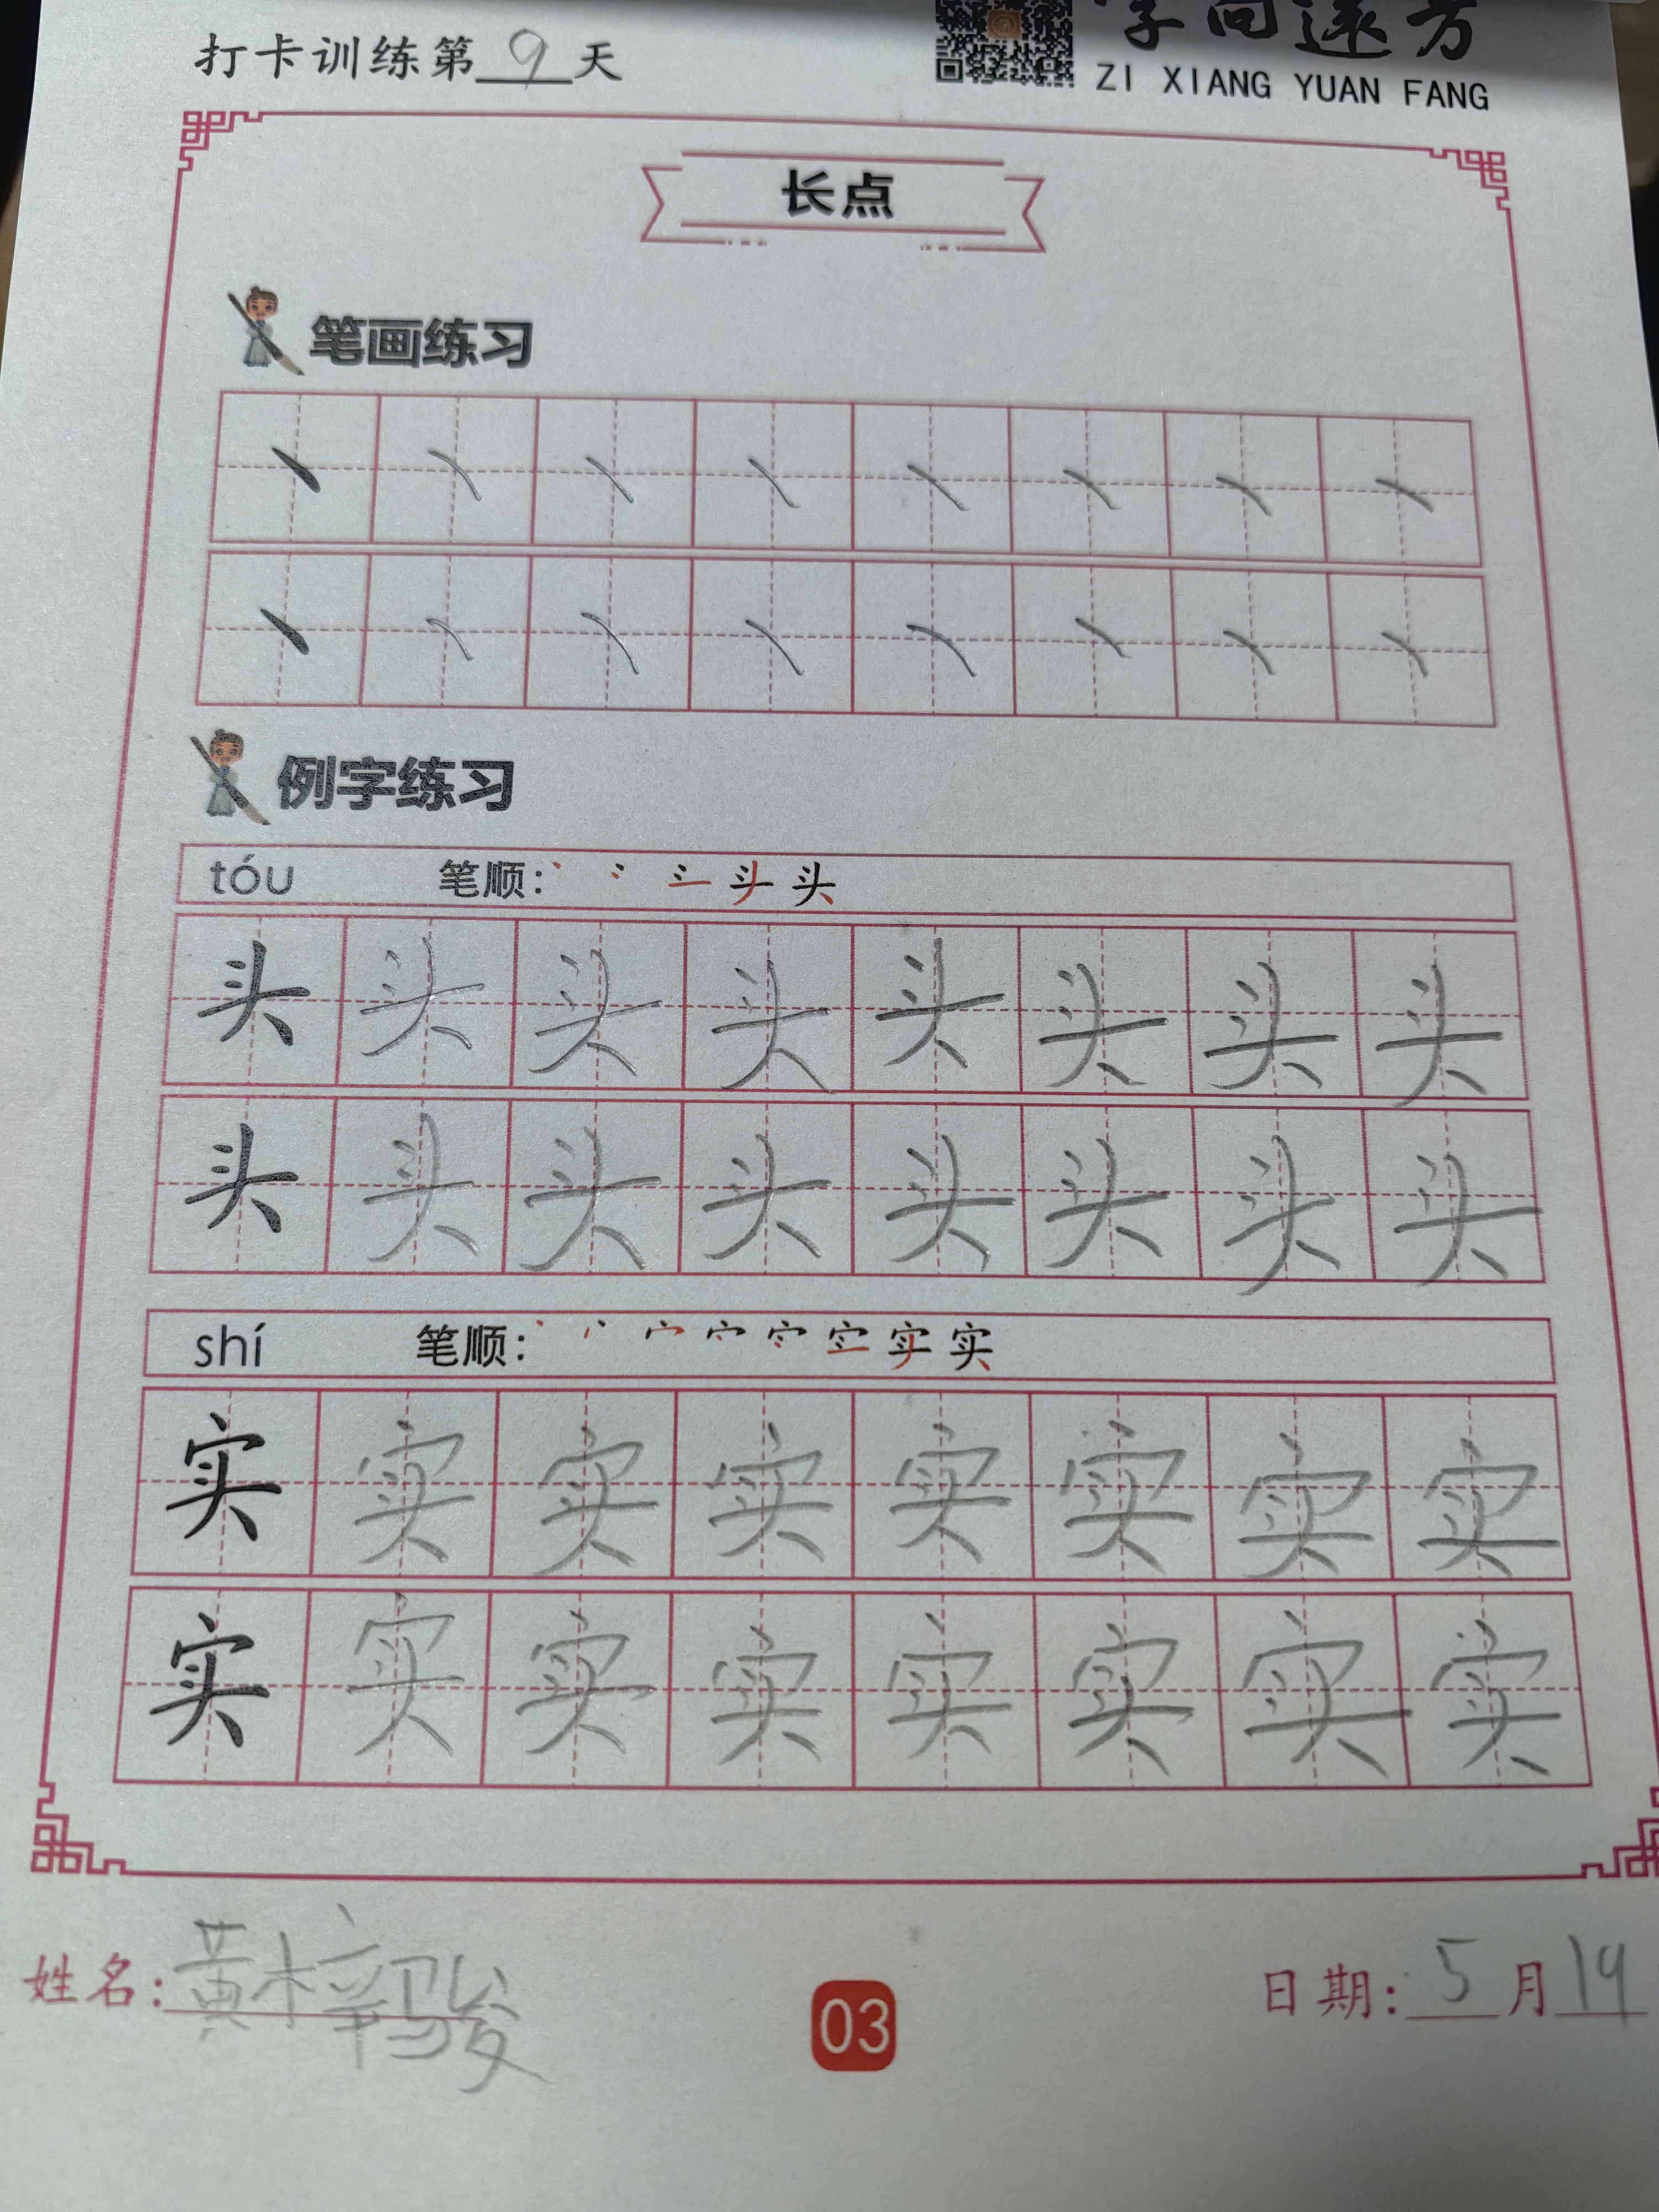 打卡训练第 9 天
字向远方
ZI XIANG YUAN FANG
长点
笔画练习
丶 丶 丶 丶 丶 丶 丶 丶
丶 丶 丶 丶 丶 丶 丶 丶
例字练习
tóu 笔顺: 头
头 头 头 头 头 头 头 头
头 头 头 头 头 头 头 头
shí 笔顺: 实
实 实 实 实 实 实 实 实
实 实 实 实 实 实 实 实
姓名: 黄梓骏
03
日期: 5 月 19